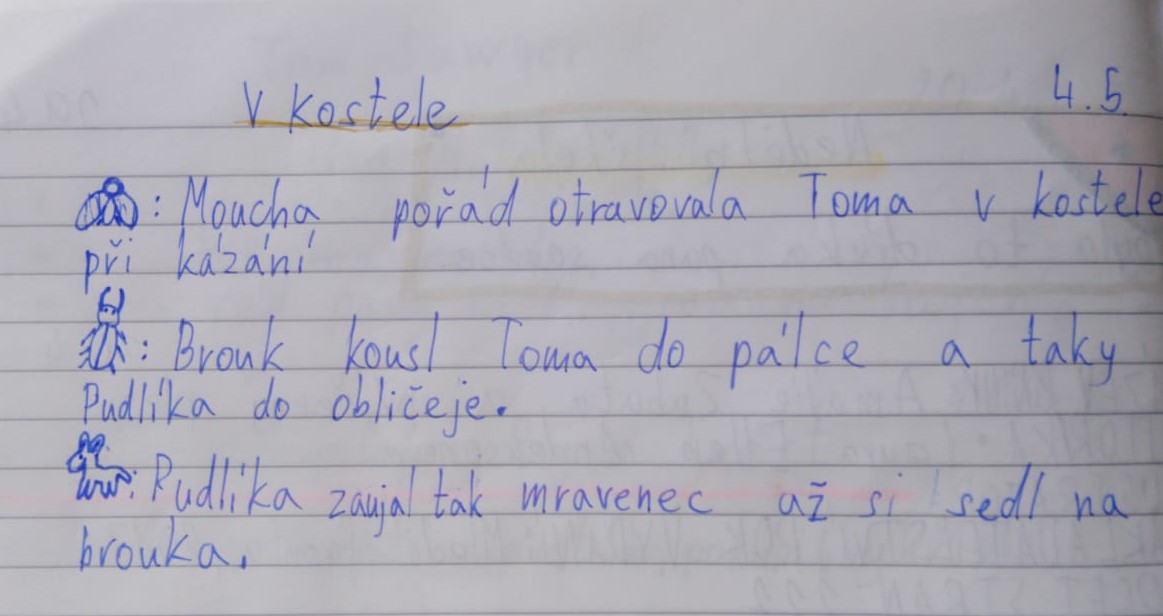 V kostele 4.5.
: Moucha pořád otravovala Toma v kostele
při kázání
: Brouk kousl Toma do pálce a taky
Pudlíka do obličeje.
: Pudlíka zaujal tak mravenec až si sedl na
brouka.